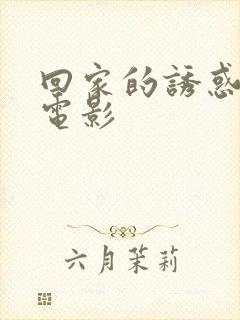 回家的誘惑
電影
六月茉莉